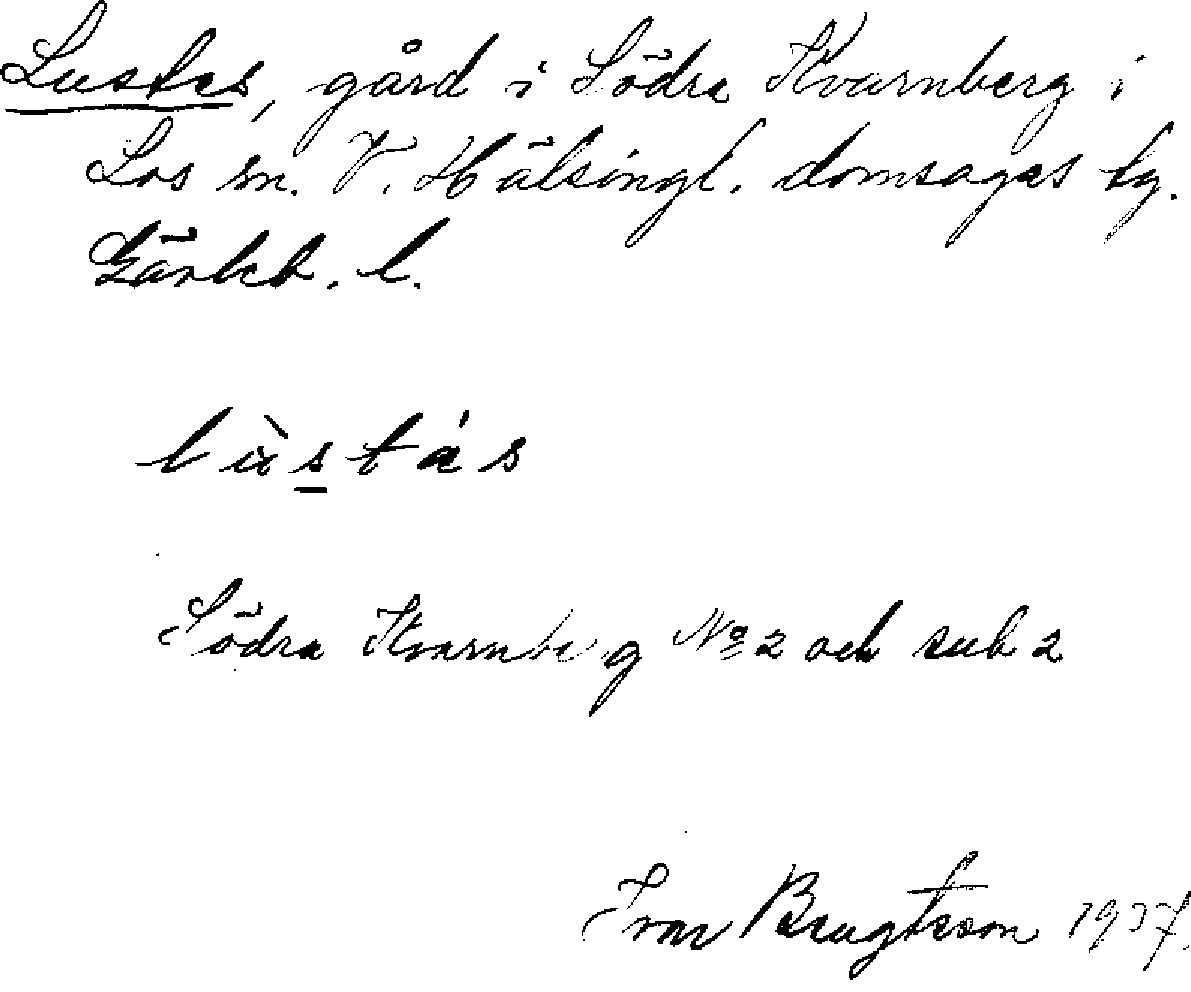 Lustas, gård i Södra Kvarnberg i
Los sn. V. Hälsingl. domsagas tg.
Gävleb. l.
lùstás
Södra Kvarnberg No 2 och sub 2
Ivar Bengtsson 1937.